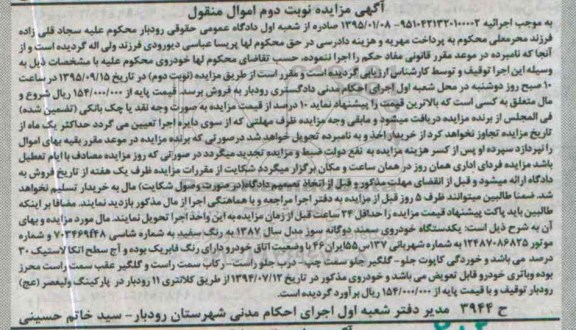 آگهی مزایده نوبت دوم اموال منقول
به موجب اجرائیه ۹۵۱۰۴۲۱۳۲۰۱۰۰۰۰۲-۱۳۹۵/۰۱/۰۸ صادره از شعبه اول دادگاه عمومی حقوقی رودبار محکوم علیه سجاد قلی زاده
فرزند محرمعلی محکوم به پرداخت مهریه و هزینه دادرسی در حق محکوم لها پریسا عباسی دیورودی فرزند ولی اله گردیده است و از
آنجا که نامبرده در موعد مقرر قانونی مفاد حکم را اجرا ننموده، حسب تقاضای محکوم لها خودروی محکوم علیه با مشخصات ذیل به
وسیله این اجرا توقیف و توسط کارشناس ارزیابی گردیده است و مقرر است از طریق مزایده (نوبت دوم) در تاریخ ۱۳۹۵/۰۹/۱۵ در ساعت
۱۰ صبح روز دوشنبه در محل شعبه اول اجرای احکام مدنی دادگستری رودبار به فروش برسد. قیمت پایه از ۱۵۴/۰۰۰/۰۰۰ ریال شروع و
مال متعلق به کسی است که بالاترین قیمت را پیشنهاد نماید ۱۰ درصد از قیمت مزایده به صورت وجه نقد یا چک بانکی (تضمین شده)
فی المجلس از برنده مزایده دریافت میشود و مابقی وجه مزایده ظرف مهلتی که از سوی دایره اجرا تعیین می گردد حداکثر یک ماه از
تاریخ مزایده تجاوز نخواهد کرد از خریدار اخذ و به نامبرده تحویل خواهد شد درصورتی که برنده مزایده در موعد مقرر بقیه بهای اموال
را نپردازد سپرده او پس از کسر هزینه مزایده به نفع دولت ضبط و مزایده تجدید میگردد در صورتی که روز مزایده مصادف با ایام تعطیل
باشد مزایده فردای اداری همان روز در همان ساعت و مکان برگزار میگردد شکایت از مقررات مزایده ظرف یک هفته از تاریخ فروش به
دادگاه ارائه میشود و قبل از انقضای مهلت مذکور و قبل از اتخاذ تصمیم دادگاه (در صورت وصول شکایت) مال به خریدار تسلیم نخواهد
شد. ضمنا طالبین میتوانند ظرف ۵ روز قبل از مزایده به دفتر اجرا مراجعه و با هماهنگی اجرا از مال مذکور بازدید نمایند. مضافا بر اینکه
طالبین باید پاکت پیشنهاد قیمت مزایده را حداقل ۲۴ ساعت قبل از زمان مزایده به این واحد اجرا تحویل نمایند. مال مورد مزایده و بهای
آن به شرح ذیل است: یکدستگاه خودروی سمند دوگانه سوز مدل سال ۱۳۸۷ به رنگ سفید به شماره شاسی ۷۰۳۴۶۹۴۸ و شماره
موتور ۱۲۴۸۷۰۸۶۸۲۵ به شماره شهربانی ۱۳۷س۵۵ ایران ۴۶ با وضعیت اتاق خودرو دارای رنگ فابریک بوده و آج سطح اتکا لاستیک ۳۰
درصد می باشد و خوردگی کاپوت جلو- گلگیر جلو سمت چپ- درب جلو راست- رکاب سمت راست و گلگیر عقب سمت راست محرز
بوده و باتری خودرو قابل تعویض می باشد و خودروی مذکور در تاریخ ۱۳۹۴/۰۷/۱۲ از طریق کلانتری ۱۱ رودبار در پارکینگ ولیعصر (عج)
رودبار توقیف و با قیمت پایه از ۱۵۴/۰۰۰/۰۰۰ ریال برآورد گردیده است.
ح ۳۹۴۴ مدیر دفتر شعبه اول اجرای احکام مدنی شهرستان رودبار- سید خاتم حسینی